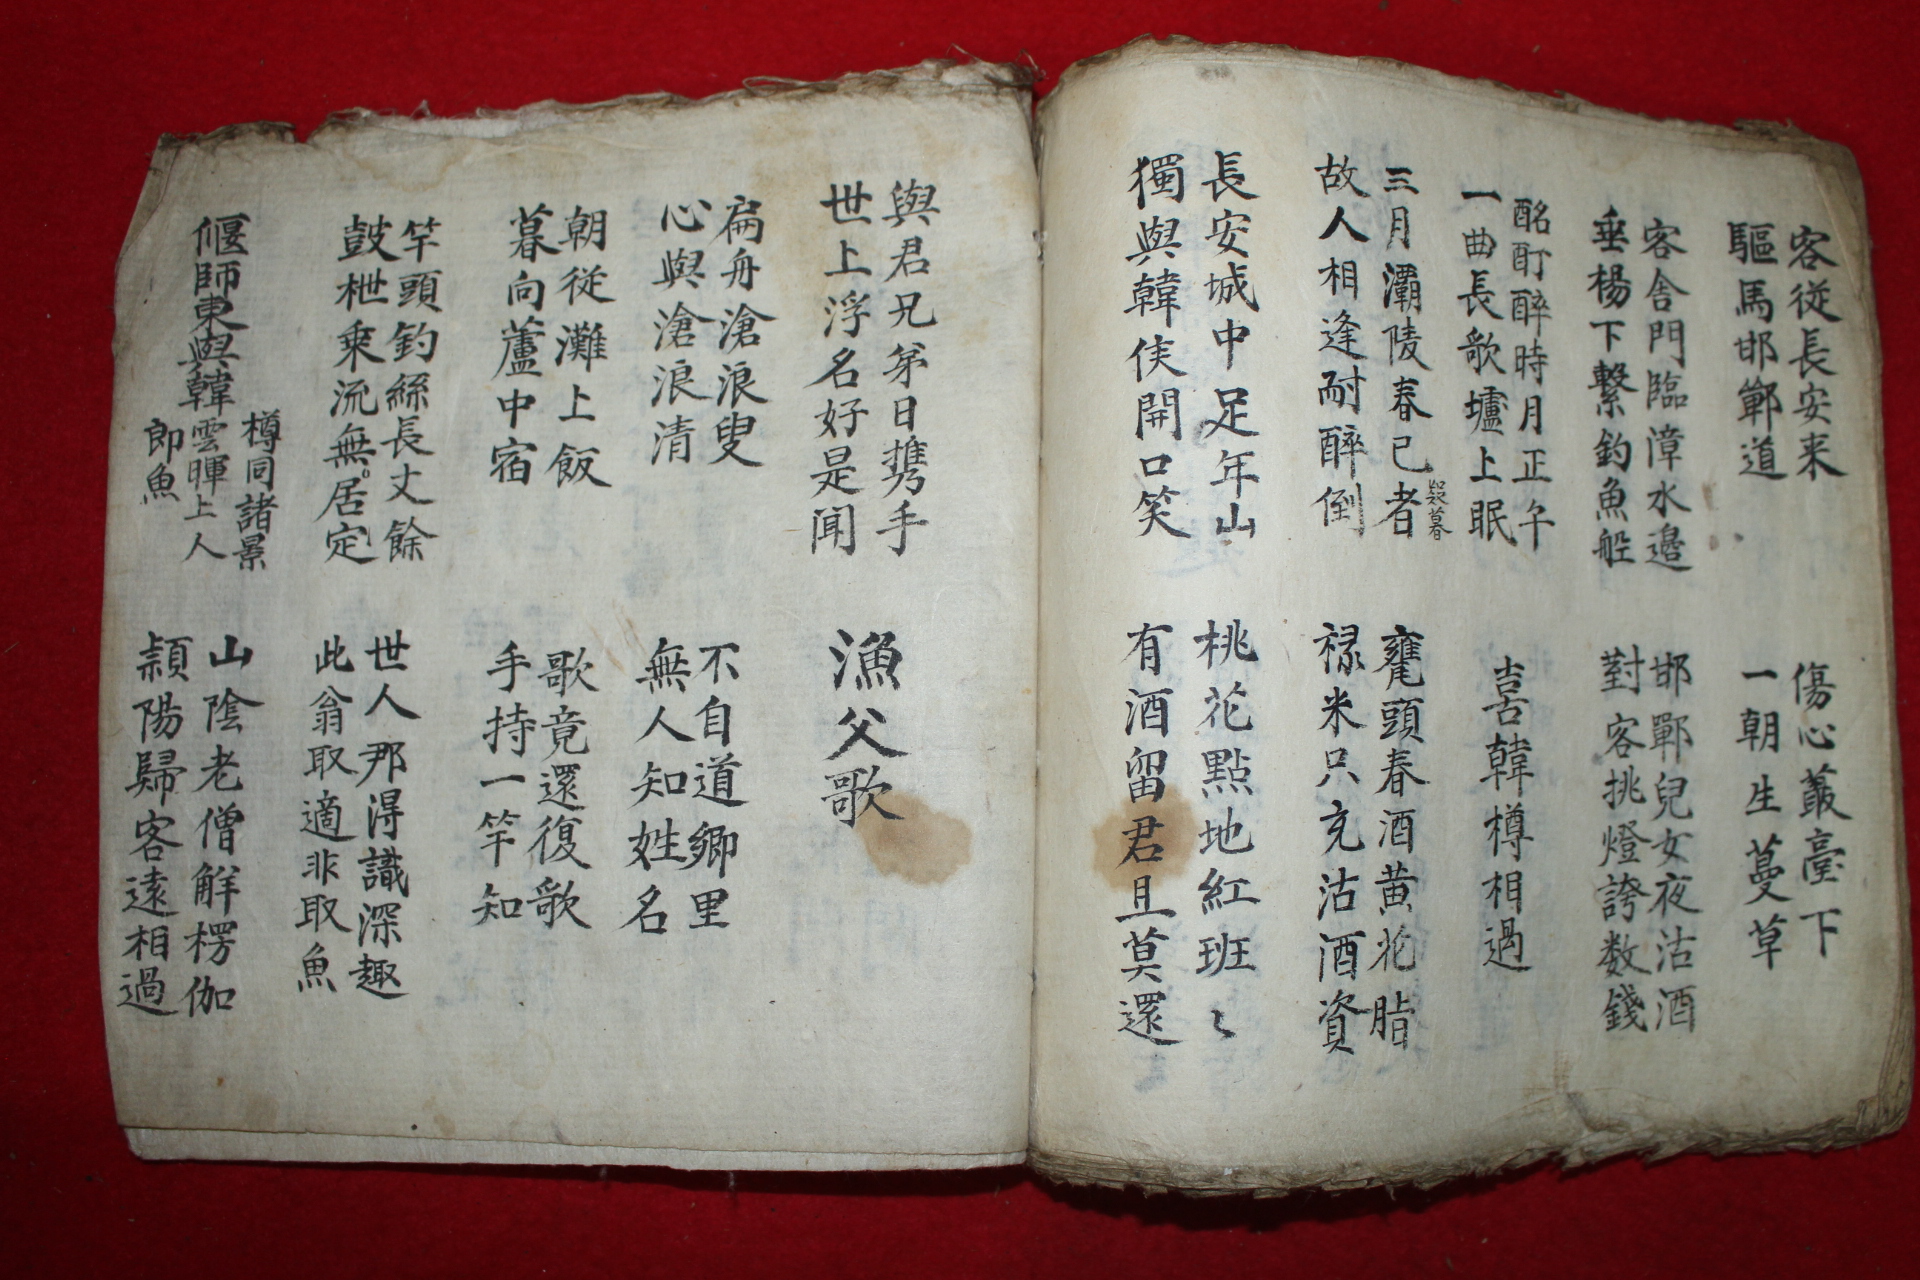 客従長安来
驅馬邯鄲道
傷心叢臺下
一朝生蔓草
客舍門臨漳水邉
垂楊下繫釣魚舩
邯鄲兒女夜沽酒
對客挑燈誇数錢
酩酊醉時月正午
一曲長歌壚上眠
喜韓樽相過
三月灞陵春已者
疑暮
故人相逢耐醉倒
甕頭春酒黄花脂
禄米只充沽酒資
長安城中足年山
獨與韓侯開口笑
桃花點地紅班〻
有酒留君且莫還
與君兄弟日携手
世上浮名好是闻
漁父歌
扁舟滄浪叟
心與滄浪清
不自道鄉里
無人知姓名
朝従灘上飯
暮向蘆中宿
歌竟還復歌
手持一竿知
竿頭釣絲長丈餘
鼓枻乗流無居定
世人那得識深趣
此翁取適非取魚
偃師東與韓
樽同諸景
雲暉上人
即魚
山陰老僧解楞伽
潁陽歸客遠相過